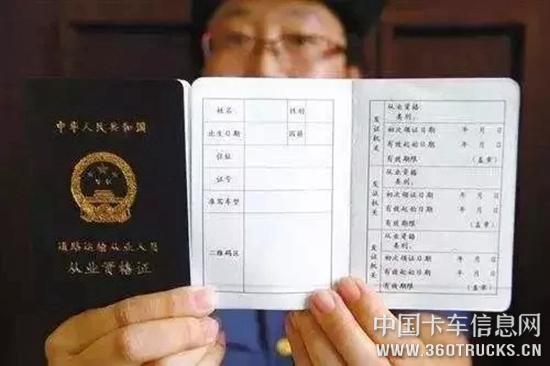 中华人民共和国
道路运输从业人员
从业资格证
姓名 性别
出生日期 国籍
住址
证号
准驾车型
二维码区
发证机关
从业资格
类别:
初次领证日期 年 月 日
有效起始日期 年 月 日
有效期限 (盖章)
发证机关
从业资格
类别:
初次领证日期 年 月 日
有效起始日期 年 月 日
有效期限 (盖章)
发证机关
从业资格
类别:
初次领证日期 年 月 日
有效起始日期 年 月 日
有效期限 (盖章)
中国卡车信息网
WWW.360TRUCKS.CN